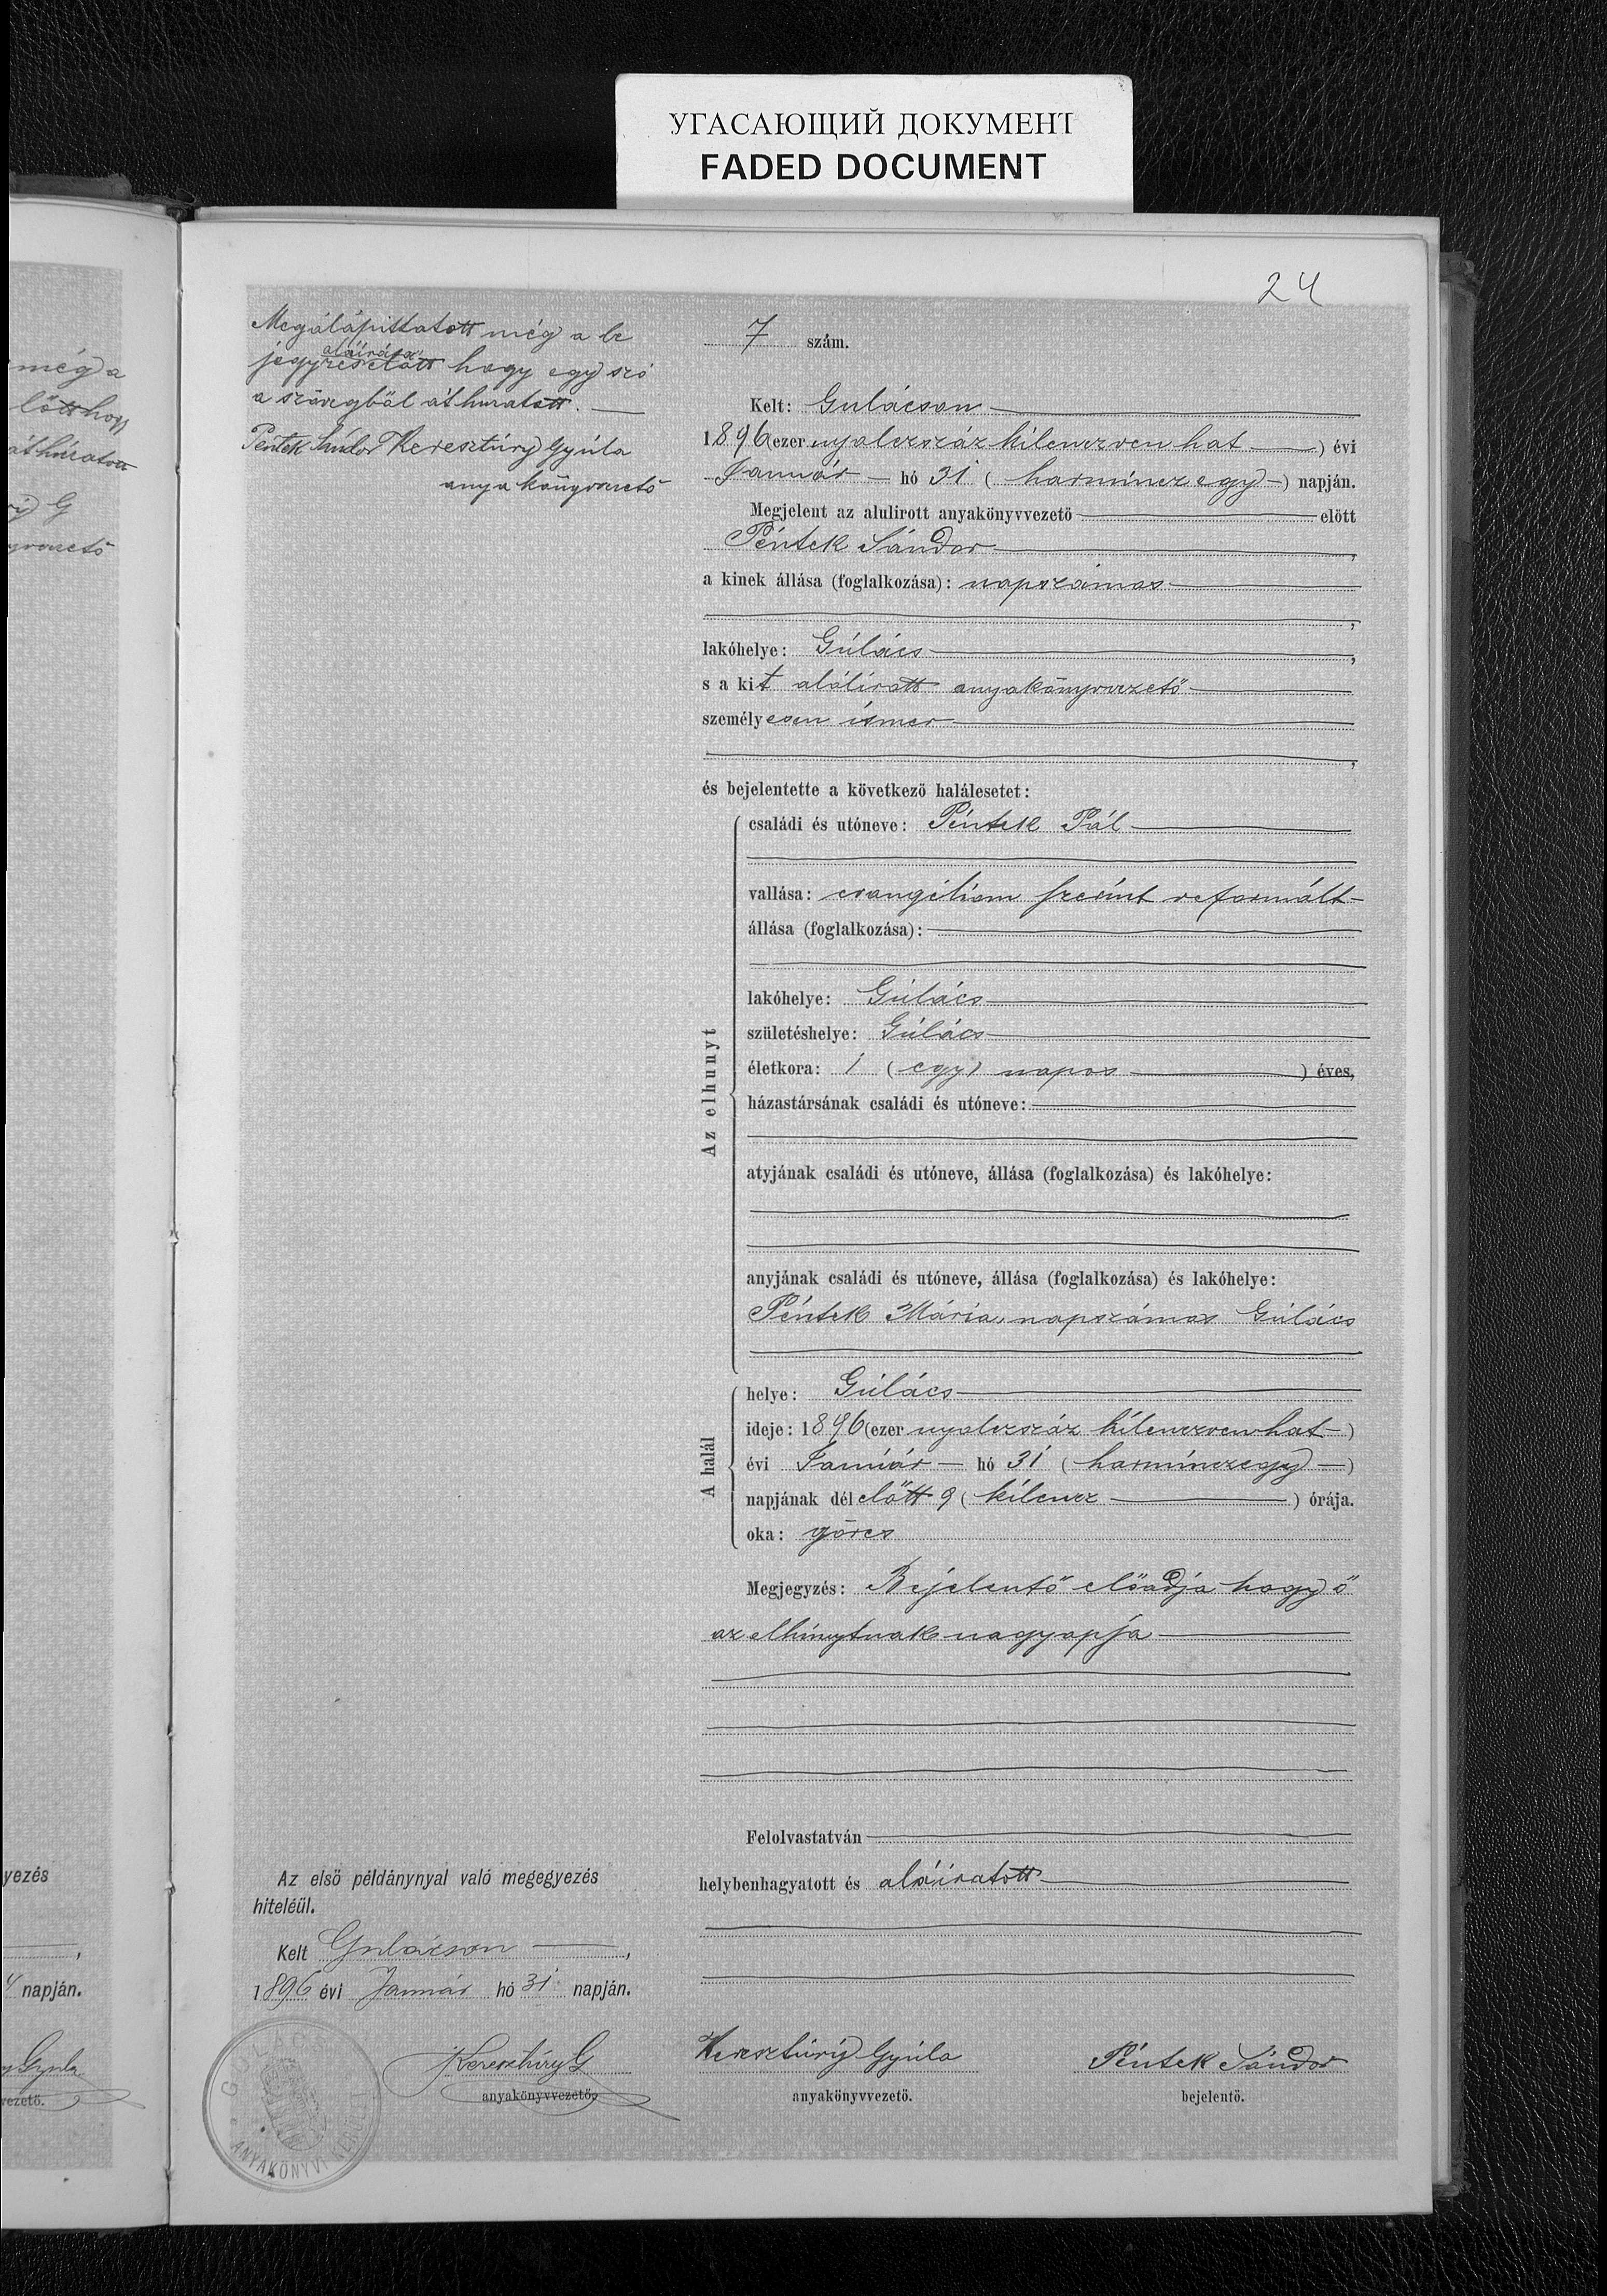 УГАСАЮЩИЙ ДОКУМЕНТ
FADED DOCUMENT
24
még a
lőtt hogy
áthúratott
yezés
napján.
Gyula
vezető.
Megálápittatott még a be
jegyzés aláirása előtt hogy egy szó
a szövegből áthuratott. —
Péntek Sándor Keresztúry Gyúla
anyakönyvvezető
7 szám.
Kelt: Gulácson —
1896 (ezer nyolczszáz kilenczven hat —) évi
Január — hó 31 (harmincz egy —) napján.
Megjelent az alulirott anyakönyvvezető — előtt
Péntek Sándor —,
a kinek állása (foglalkozása): napszámos —
,
lakóhelye: Gúlács —,
s a kit alólirott anyakönyvvezető —
személyesen ismer —
,
és bejelentette a következő halálesetet:
Az elhunyt
családi és utóneve: Péntek Pál —
vallása: evangéliom szerint reformált —
állása (foglalkozása): —
lakóhelye: Gúlács —
születéshelye: Gúlács —
életkora: 1 (egy) napos —) éves,
házastársának családi és utóneve: —
atyjának családi és utóneve, állása (foglalkozása) és lakóhelye:
anyjának családi és utóneve, állása (foglalkozása) és lakóhelye:
Péntek Mária, napszámos Gúlács
A halál
helye: Gúlács —
ideje: 1896 (ezer nyolczszáz kilenczvenhat —)
évi Január — hó 31 (harminczegy —)
napjának délelőtt 9 (kilencz —) órája.
oka: görcs
Megjegyzés: Bejelentő előadja hogy ő
az elhúnytnak nagyapja —
Felolvastatván —
helybenhagyatott és aláiratott —
Az első példánynyal való megegyezés
hiteléül.
Kelt Gulácson —,
1896 évi Január hó 31 napján.
Keresztúry G
anyakönyvvezető.
Keresztúry Gyúla
anyakönyvvezető.
Péntek Sándor
bejelentő.
GULÁCS
ANYAKÖNYVI KERÜLET